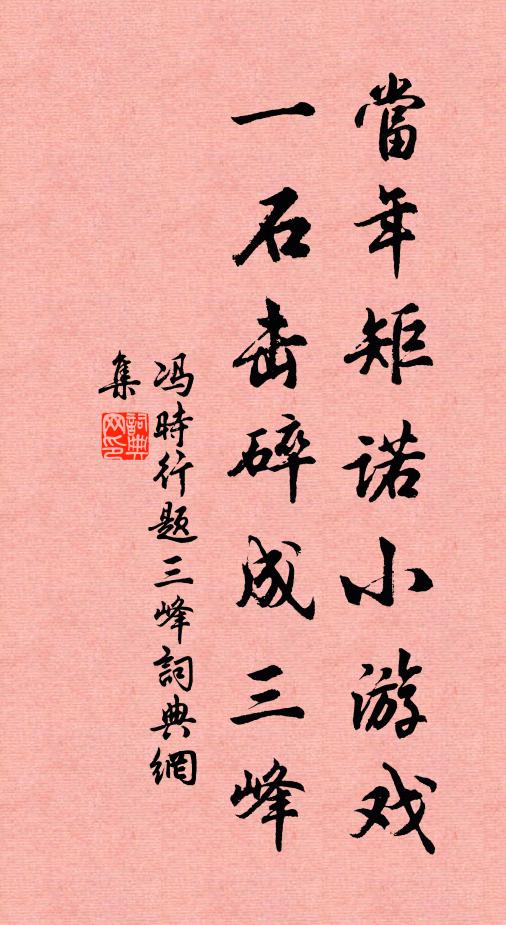 當年矩诺小游戏
一石击碎成三峰
冯時行题三峰詞典網
集
詞典網印